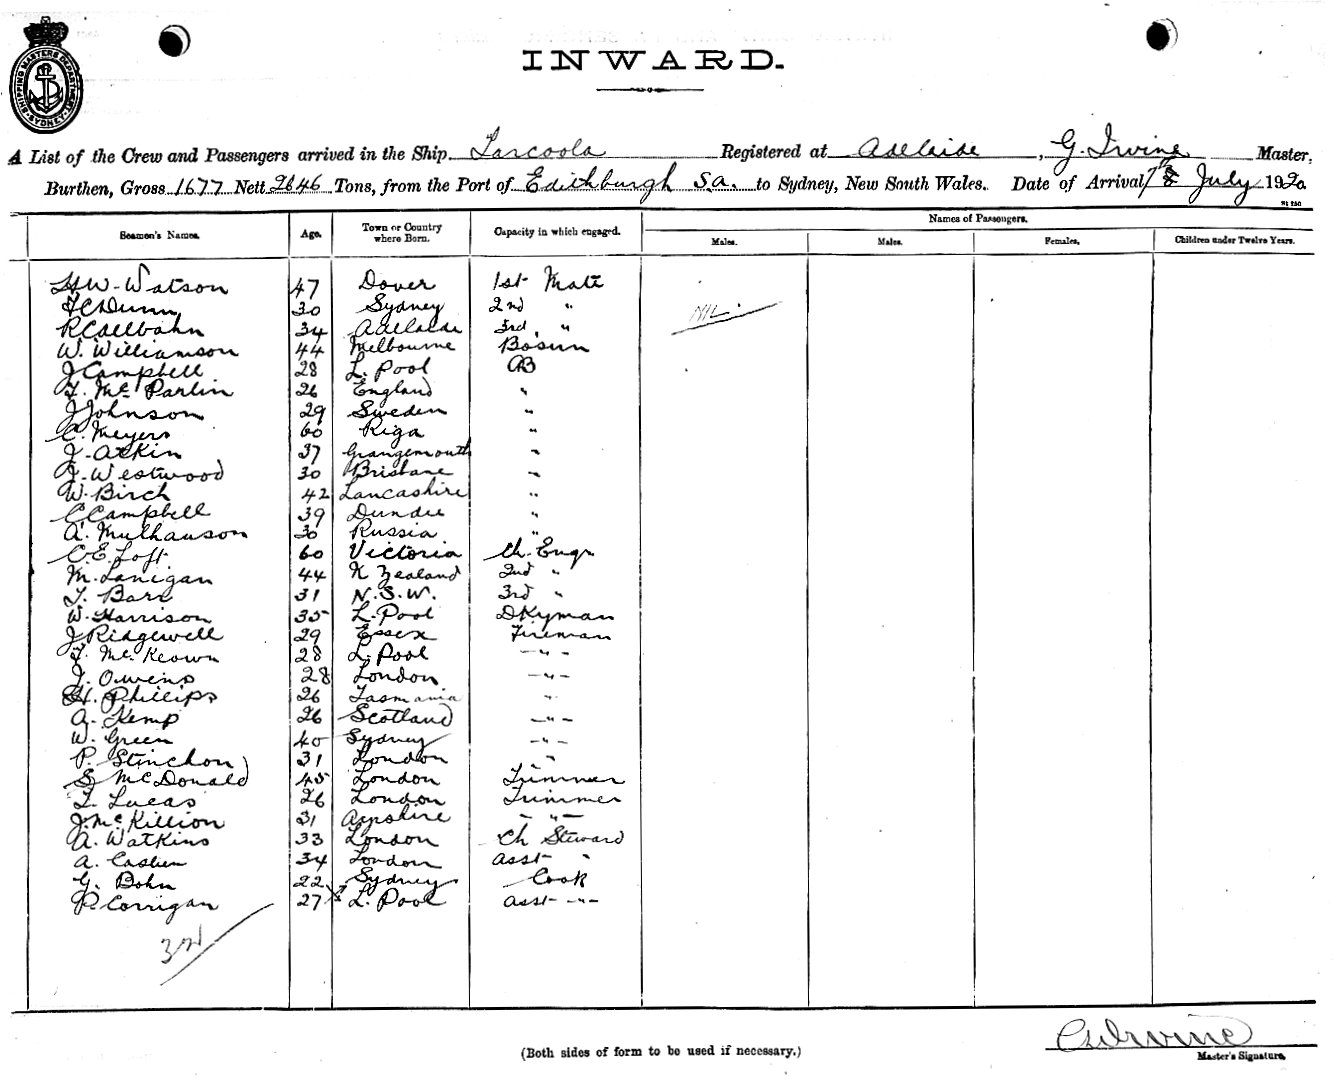 SHIPPING MASTERS DEPARTMENT SYDNEY
INWARD.
A List of the Crew and Passengers arrived in the Ship Tarcoola Registered at Adelaide, G. Irvine Master,
Burthen, Gross 1677 Nett 2646 Tons, from the Port of Edithburgh S.a. to Sydney, New South Wales. Date of Arrival July 1920
Names of Passengers.
Seamen's Names. Age. Town or Country where Born. Capacity in which engaged. Males. Males. Females. Children under Twelve Years.
H W. Watson 47 Dover 1st Mate
F C Dunn 30 Sydney 2nd "
NIL.
R Caelbahn 34 Adelaide 3rd "
W. Williamson 44 Melbourne Bosun
J Campbell 28 L. Pool AB
T. Mc Parlin 26 England "
J Johnson 29 Sweden "
C. Meyers 60 Riga "
J. Atkin 37 Grangemouth "
J. Westwood 30 Brisbane "
W. Birch 42 Lancashire "
C Campbell 39 Dundee "
A. Mulhauson 30 Russia "
C. E. Loft 60 Victoria Ch. Engr
M. Lanigan 44 N Zealand 2nd "
T. Barr 31 N.S.W. 3rd "
W. Harrison 35 L. Pool DKyman
J Ridgewell 29 Essex Fireman
T. Mc Keown 28 L. Pool -"-
J. Owens 28 London -"-
H. Phillips 26 Tasmania "
A. Kemp 26 Scotland -"-
W. Green 40 Sydney -"-
P. Stinchon 31 London "
S McDonald 45 London Trimmer
T. Lucas 26 London Trimmer
J. McKillion 31 Ayrshire -"-
A. Watkins 33 London Ch Steward
A. Cashen 34 London asst "
G. Bohn 22 Sydney Cook
P. Corrigan 27 L. Pool asst -"-
(Both sides of form to be used if necessary.)
G Irvine
Master's Signature.